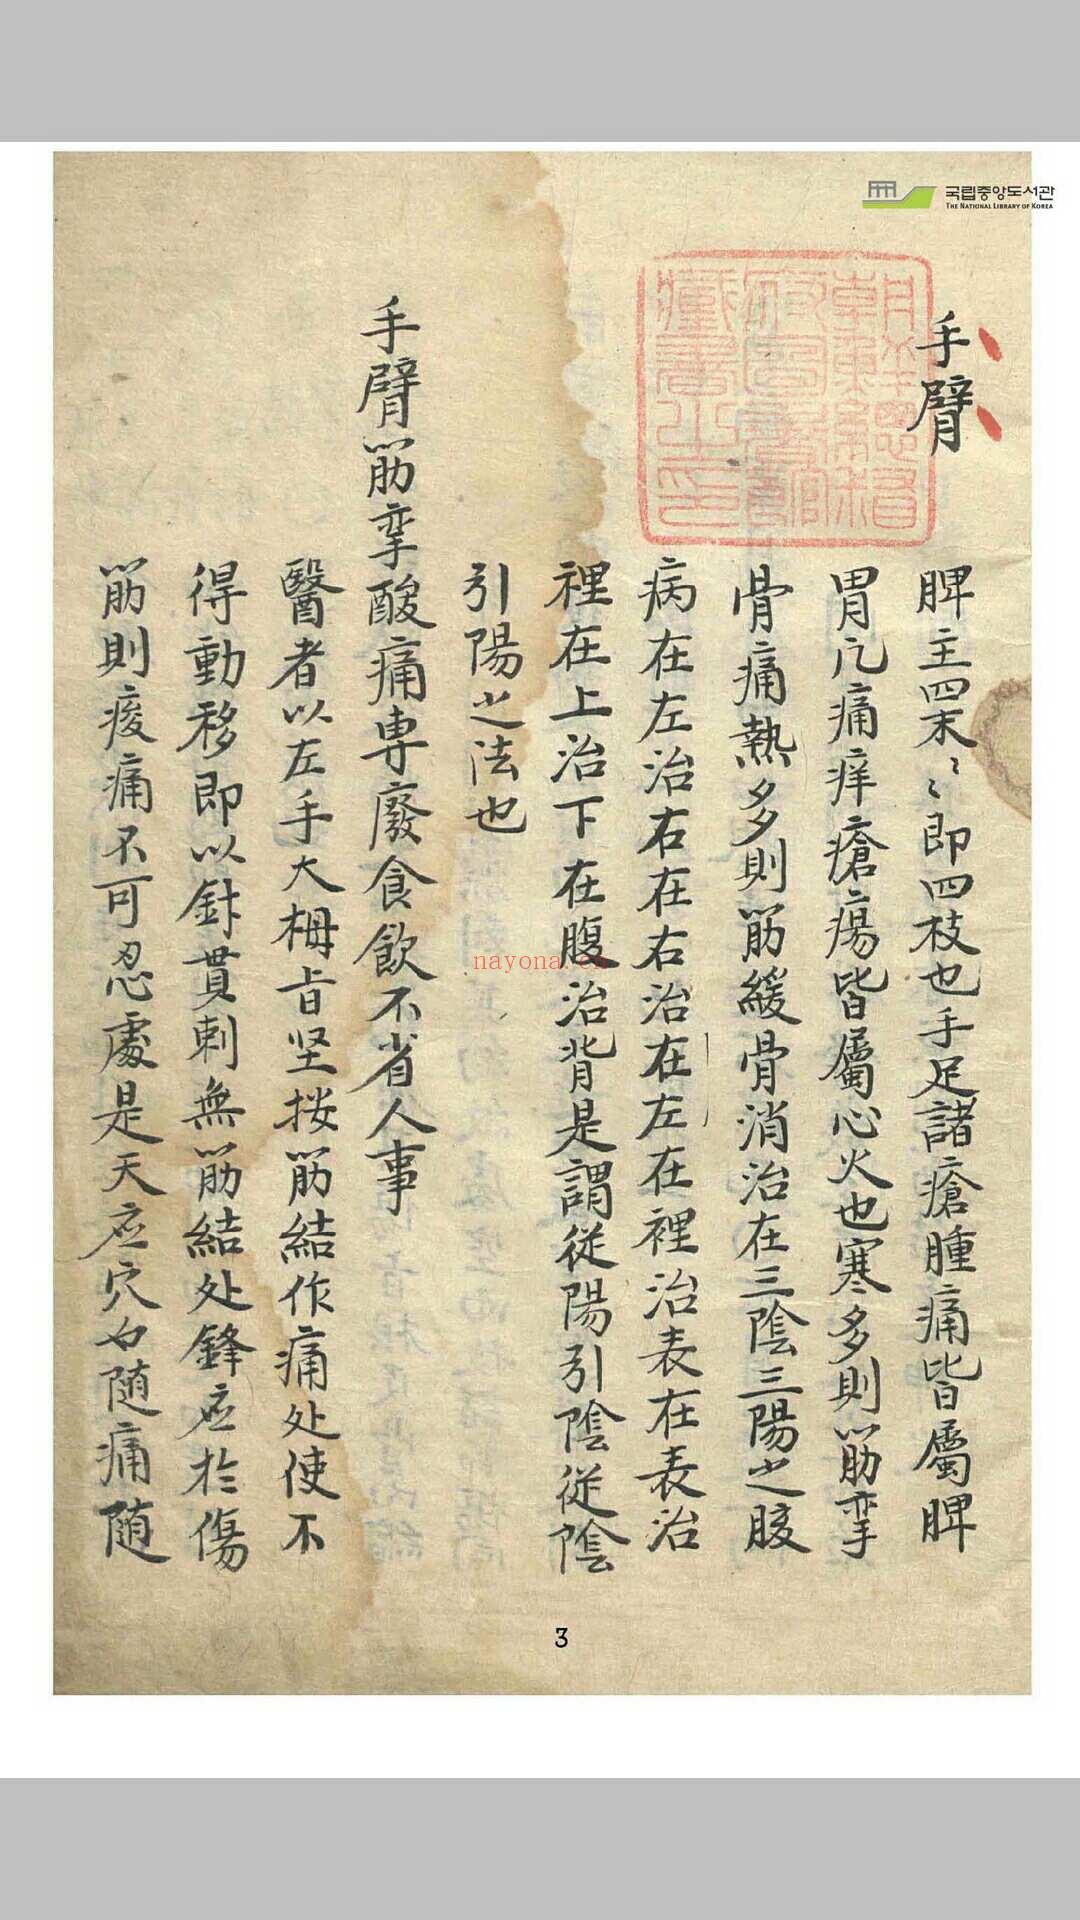 국립중앙도서관
THE NATIONAL LIBRARY OF KOREA
朝鮮總督府圖書館藏書之印
手臂
脾主四末〻〻即四枝也手足諸瘡腫痛皆屬脾
胃凡痛痒瘡瘍皆屬心火也寒多則筋攣
骨痛熱多則筋緩骨消治在三陰三陽之腧
病在左治右在右治在左在裡治表在表治
裡在上治下在腹治背是謂從陽引陰從陰
引陽之法也
手臂筋挛酸痛専廢食飲不省人事
醫者以左手大拇旨坚按筋結作痛处使不
得動移即以針貫刺無筋結处鋒应於傷
筋則痠痛不可忍處是天应穴也随痛随
nayona.cn
3